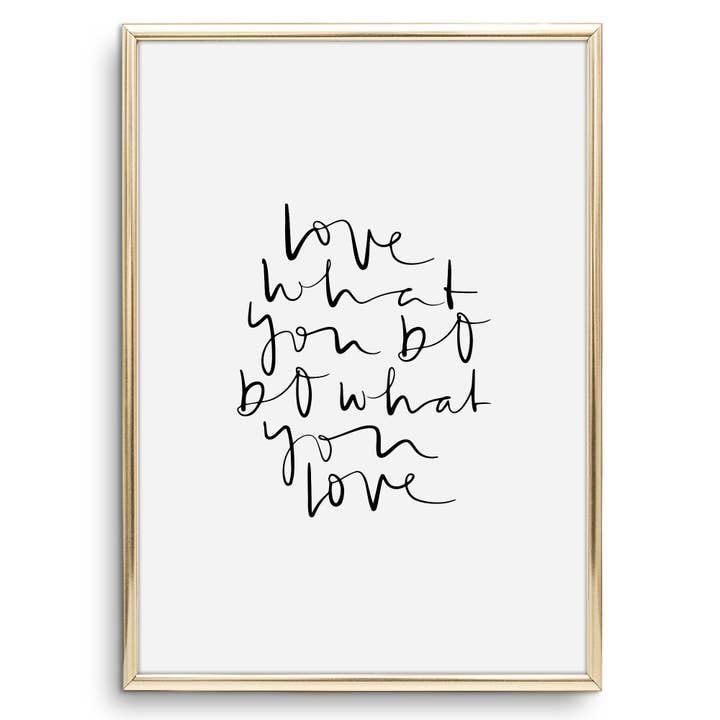 love
what
you DO
DO what
you
love